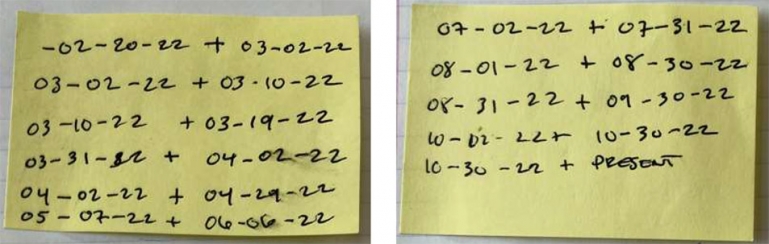 -02-20-22 + 03-02-22
03-02-22 + 03-10-22
03-10-22 + 03-19-22
03-31-22 + 04-02-22
04-02-22 + 04-29-22
05-07-22 + 06-06-22
07-02-22 + 07-31-22
08-01-22 + 08-30-22
08-31-22 + 09-30-22
10-02-22 + 10-30-22
10-30-22 + PRESENT